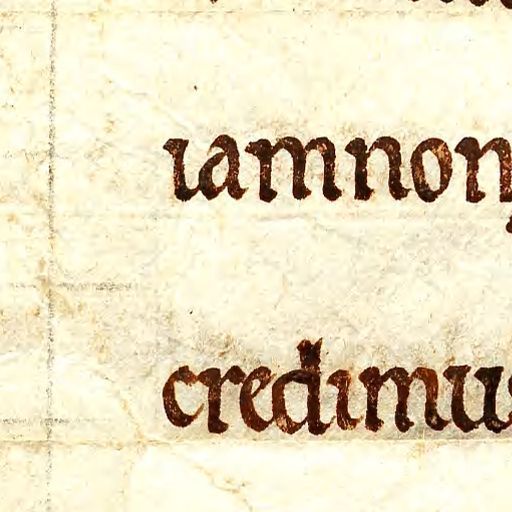 iam non
credimus